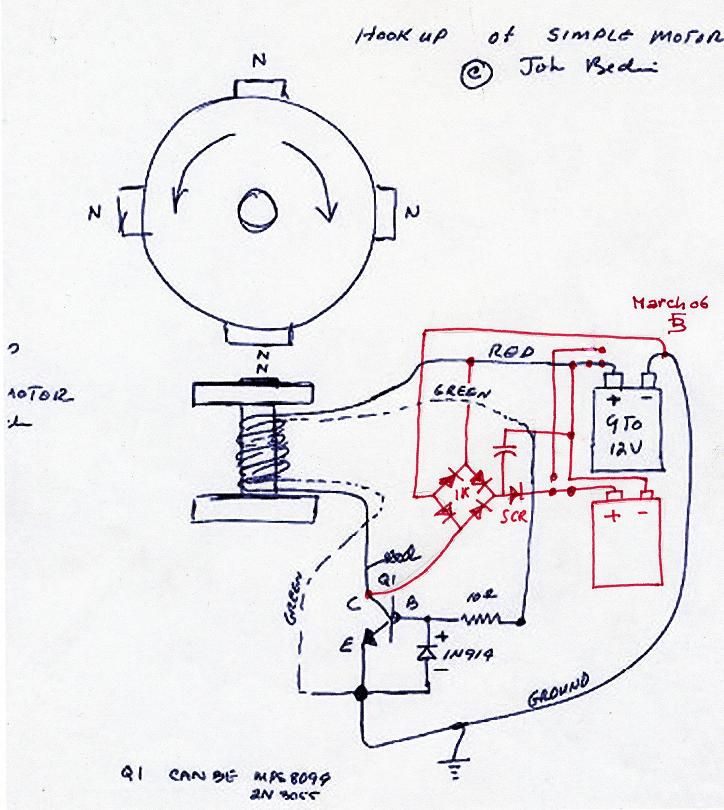 HOOK UP of SIMPLE MOTOR
© John Bedini
N
N
N
N
N
MOTOR
March 06
RED
GREEN
+ -
9 TO
12V
1K
SCR
+ -
Red
Q1
GREEN
C
B
10Ω
E
+
1N914
-
GROUND
Q1 CAN BE MPS8099
2N3055